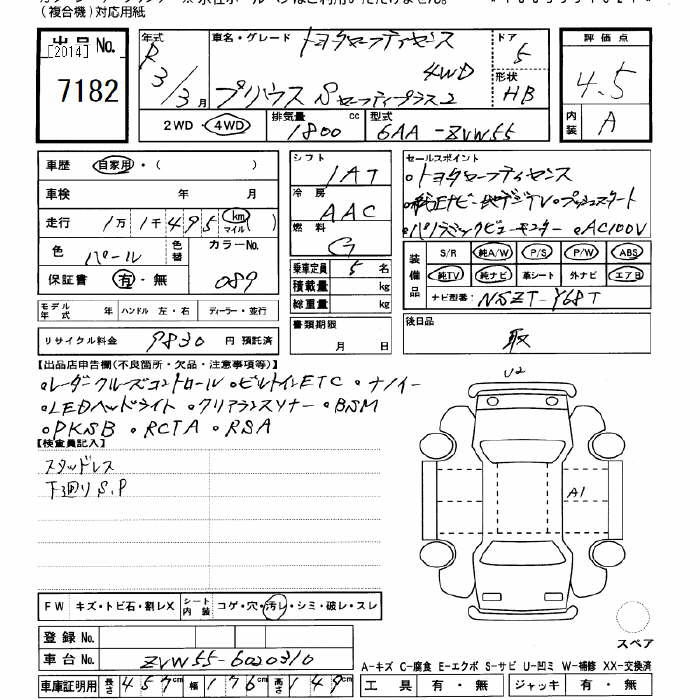 (複合機)対応用紙
出品No.
[2014]
7182
年式
R3/3月
車名・グレード
トヨタセーフティセンス
4WD
プリウス Sセーフティプラス2
ドア
5
形状
HB
評価点
4.5
内装
A
2WD・4WD
排気量
1800 cc
型式
6AA-ZVW55
車歴 自家用・( )
車検 年 月
走行 1万1千495 km マイル ( )
色 パール
色替
カラーNo.
089
保証書 有・無
シフト
1AT
冷房
AAC
燃料
G
乗車定員 5名
積載量 kg
総重量 kg
書類期限
月 日
セールスポイント
・トヨタセーフティセンス
・純正ナビ・地デジTV・プッシュスタート
・パノラミックビューモニター・AC100V
装備品
S/R 純A/W P/S P/W ABS
純TV 純ナビ 革シート 外ナビ エアB
ナビ型番: NSZT-Y68T
後日品
取
モデル年式 年 ハンドル 左・右 ディーラー・並行
リサイクル料金 9830 円 預託済
【出品店申告欄(不良箇所・欠品・注意事項等)】
・レーダークルーズコントロール・ビルトインETC・ナノイー
・LEDヘッドライト・クリアランスソナー・BSM
・PKSB・RCTA・RSA
【検査員記入】
スタッドレス
下廻りS.P
U2
A1
スペア
FW キズ・トビ石・割レX シート内装 コゲ・穴・汚レ・シミ・破レ・スレ
登録No.
車台No. ZVW55-6020310
車庫証明用 長さ 457cm 幅 176cm 高さ 149cm
A-キズ C-腐食 E-エクボ S-サビ U-凹ミ W-補修 XX-交換済
工具 有・無 ジャッキ 有・無